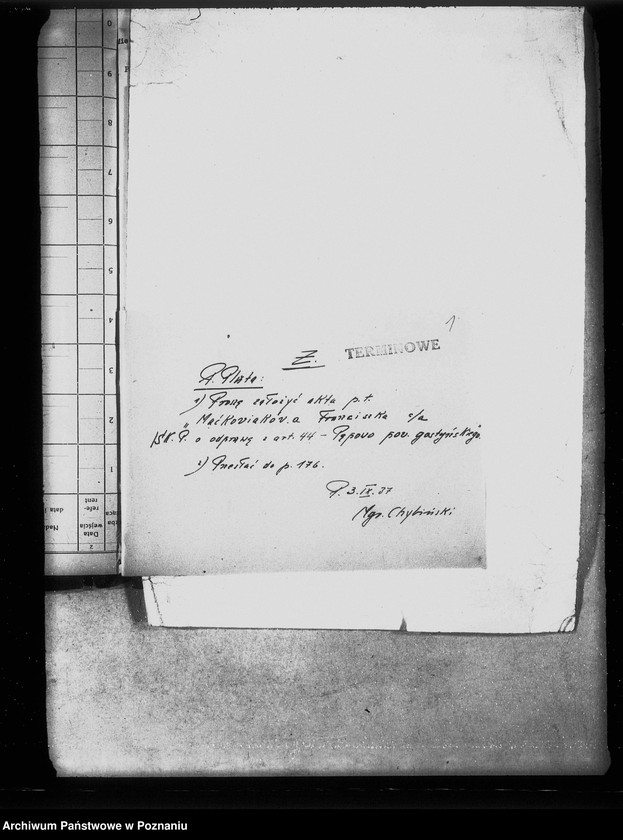 1
TERMINOWE
Z.
1) Proszę założyć akta p.t.
"Maćkowiakówna Franciszka c/a
o odprawę z art. 44 - Pępowo pow. gostyńskiego"
2) Przesłać do p. 176.
P. 3.IX.37
Mgr. Chybiński
0
9
8
7
6
5
4
3
2
1
Data
wejścia
refe-
rent
2
Archiwum Państwowe w Poznaniu